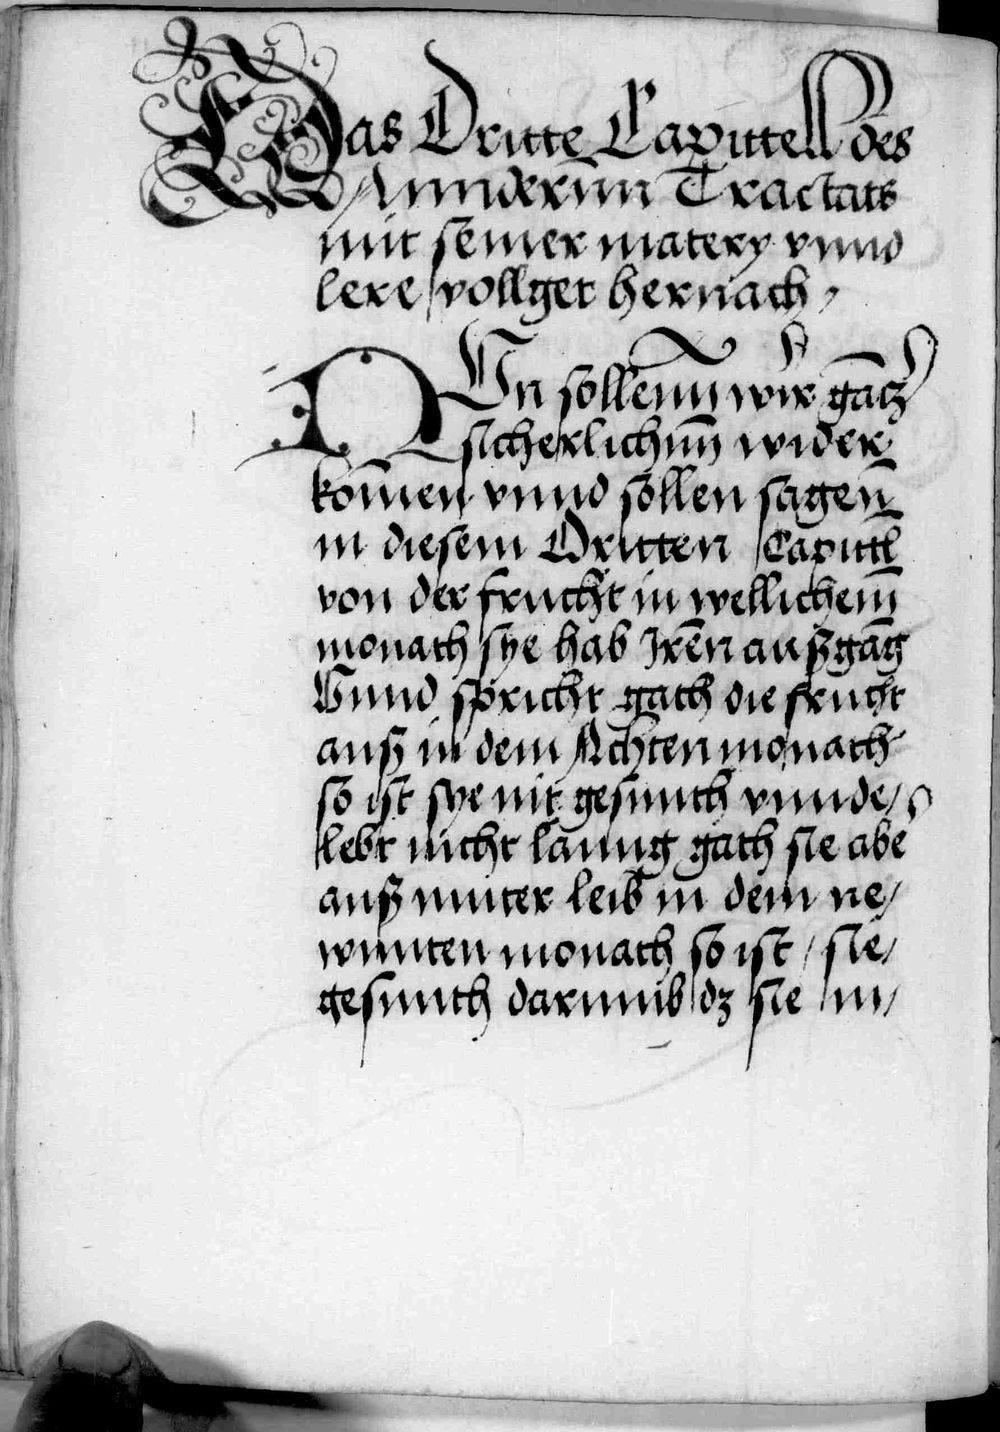 Das Dritte Capittell des
Anndernn Tractats
mit seiner matery vnnd
lere vollget hernach,
NVn sollenn wir gācz
sicherlichnn̄ wider
kom̄en vnnd sollen sagen̄
in diesem Dritten Capittl
von der frucht in wellichem̄
monath sye hab Irēn außgāg
Vnnd spricht gath die frucht
auß in dem Achten monath
so ist sye nit gesunth vnnde/
lebt nicht lanng gath sie abe
auß muter leib in dem ne/
wnnten monath so ist / sie/
gesunth darumb dz sie in/